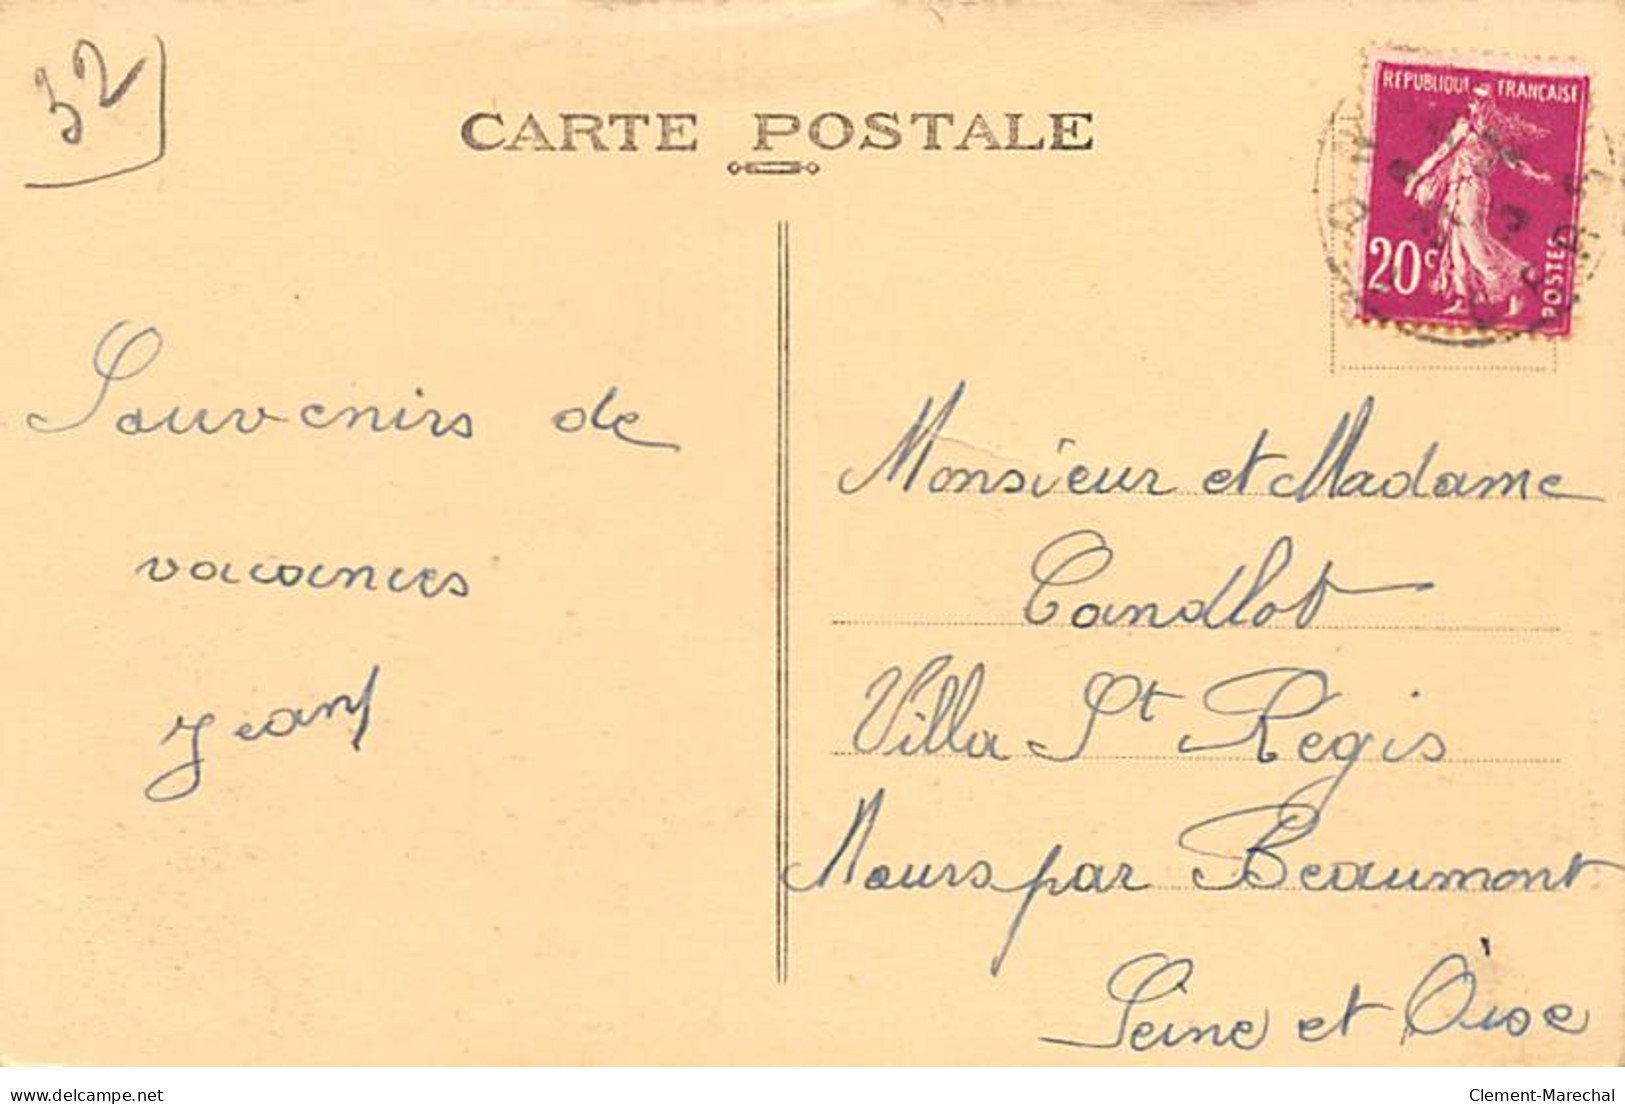 52
CARTE POSTALE
RÉPUBLIQUE FRANÇAISE
20c
POSTES
Souvenirs de
vacances
Jean
Monsieur et Madame
Candlot
Villa St Regis
Nours par Beaumont
Seine et Oise
delcampe.net
Clement-Marechal